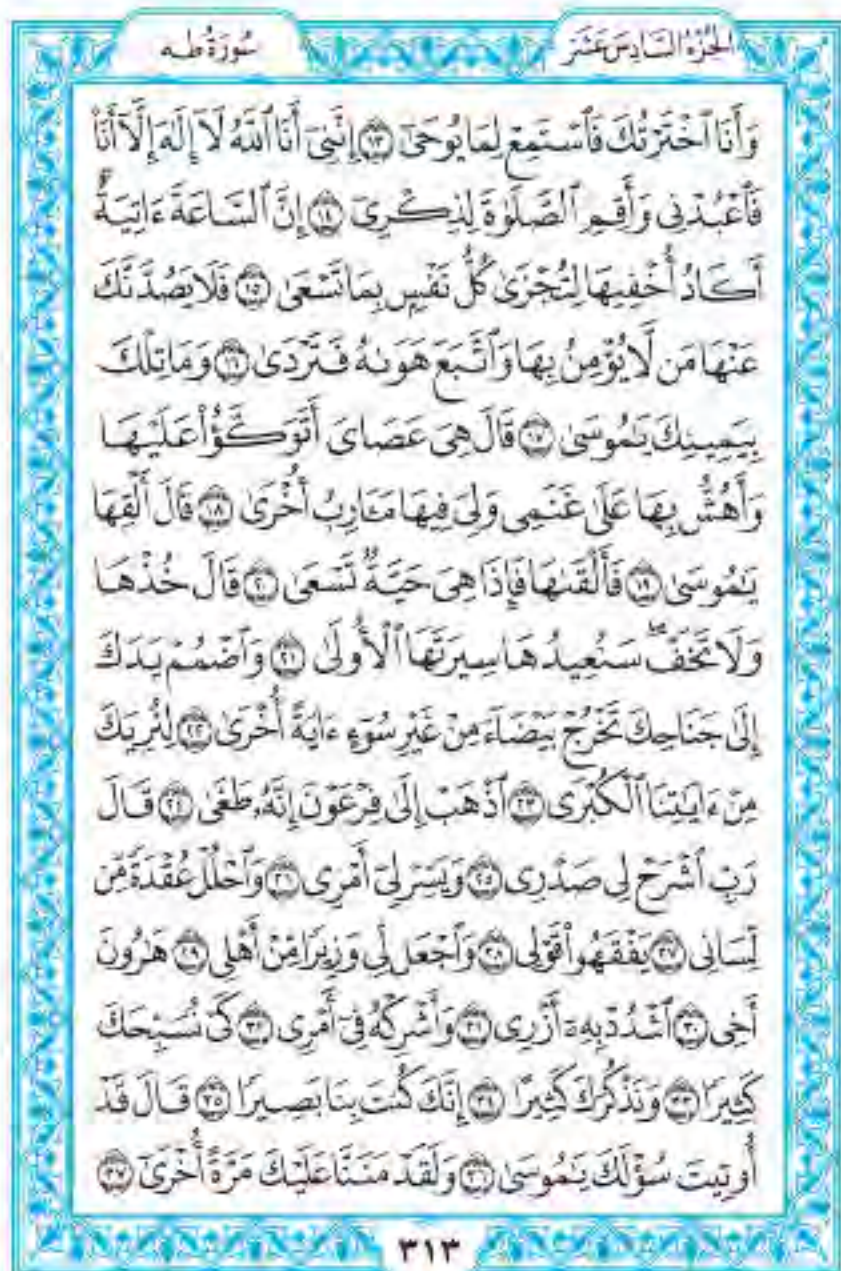 الجُزْءُ السَّادِسَ عَشَرَ
سُورَةُ طه
وَأَنَا ٱخْتَرْتُكَ فَٱسْتَمِعْ لِمَا يُوحَىٰٓ ۝١٣ إِنَّنِىٓ أَنَا ٱللَّهُ لَآ إِلَٰهَ إِلَّآ أَنَا۠
فَٱعْبُدْنِى وَأَقِمِ ٱلصَّلَوٰةَ لِذِكْرِىٓ ۝١٤ إِنَّ ٱلسَّاعَةَ ءَاتِيَةٌ
أَكَادُ أُخْفِيهَا لِتُجْزَىٰ كُلُّ نَفْسٍۭ بِمَا تَسْعَىٰ ۝١٥ فَلَا يَصُدَّنَّكَ
عَنْهَا مَن لَّا يُؤْمِنُ بِهَا وَٱتَّبَعَ هَوَىٰهُ فَتَرْدَىٰ ۝١٦ وَمَا تِلْكَ
بِيَمِينِكَ يَٰمُوسَىٰ ۝١٧ قَالَ هِىَ عَصَاىَ أَتَوَكَّؤُا۟ عَلَيْهَا
وَأَهُشُّ بِهَا عَلَىٰ غَنَمِى وَلِىَ فِيهَا مَـَٔارِبُ أُخْرَىٰ ۝١٨ قَالَ أَلْقِهَا
يَٰمُوسَىٰ ۝١٩ فَأَلْقَىٰهَا فَإِذَا هِىَ حَيَّةٌ تَسْعَىٰ ۝٢٠ قَالَ خُذْهَا
وَلَا تَخَفْ ۖ سَنُعِيدُهَا سِيرَتَهَا ٱلْأُولَىٰ ۝٢١ وَٱضْمُمْ يَدَكَ
إِلَىٰ جَنَاحِكَ تَخْرُجْ بَيْضَآءَ مِنْ غَيْرِ سُوٓءٍ ءَايَةً أُخْرَىٰ ۝٢٢ لِنُرِيَكَ
مِنْ ءَايَٰتِنَا ٱلْكُبْرَى ۝٢٣ ٱذْهَبْ إِلَىٰ فِرْعَوْنَ إِنَّهُۥ طَغَىٰ ۝٢٤ قَالَ
رَبِّ ٱشْرَحْ لِى صَدْرِى ۝٢٥ وَيَسِّرْ لِىٓ أَمْرِى ۝٢٦ وَٱحْلُلْ عُقْدَةً مِّن
لِّسَانِى ۝٢٧ يَفْقَهُوا۟ قَوْلِى ۝٢٨ وَٱجْعَل لِّى وَزِيرًا مِّنْ أَهْلِى ۝٢٩ هَٰرُونَ
أَخِى ۝٣٠ ٱشْدُدْ بِهِۦٓ أَزْرِى ۝٣١ وَأَشْرِكْهُ فِىٓ أَمْرِى ۝٣٢ كَىْ نُسَبِّحَكَ
كَثِيرًا ۝٣٣ وَنَذْكُرَكَ كَثِيرًا ۝٣٤ إِنَّكَ كُنتَ بِنَا بَصِيرًا ۝٣٥ قَالَ قَدْ
أُوتِيتَ سُؤْلَكَ يَٰمُوسَىٰ ۝٣٦ وَلَقَدْ مَنَنَّا عَلَيْكَ مَرَّةً أُخْرَىٰٓ ۝٣٧
٣١٣